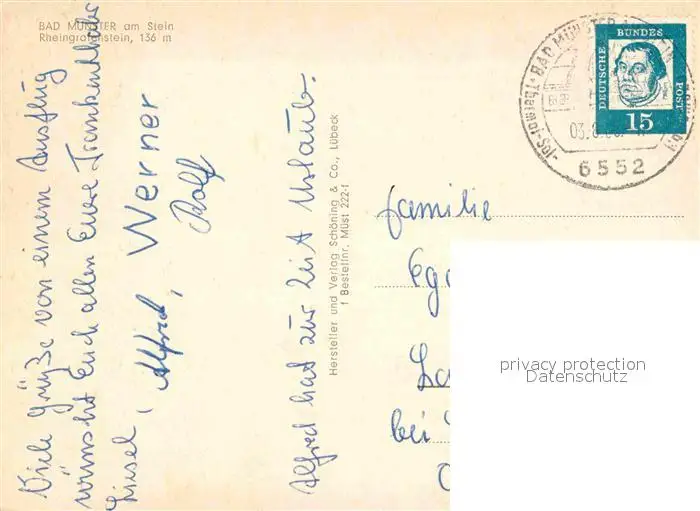 BAD MÜNSTER am Stein
Rheingrafenstein, 136 m
Viele Grüße von einem Ausflug
wünscht Euch allen Eure
Liesel, Alfred, Werner
Rolf
Alfred hat zur Zeit Urlaub.
Hersteller und Verlag Schöning & Co., Lübeck
Bestellnr. Müst 222-f
BAD MÜNSTER
Thermal-Sol-
03.8.
6552
DEUTSCHE BUNDESPOST
15
Familie
bei
privacy protection
Datenschutz